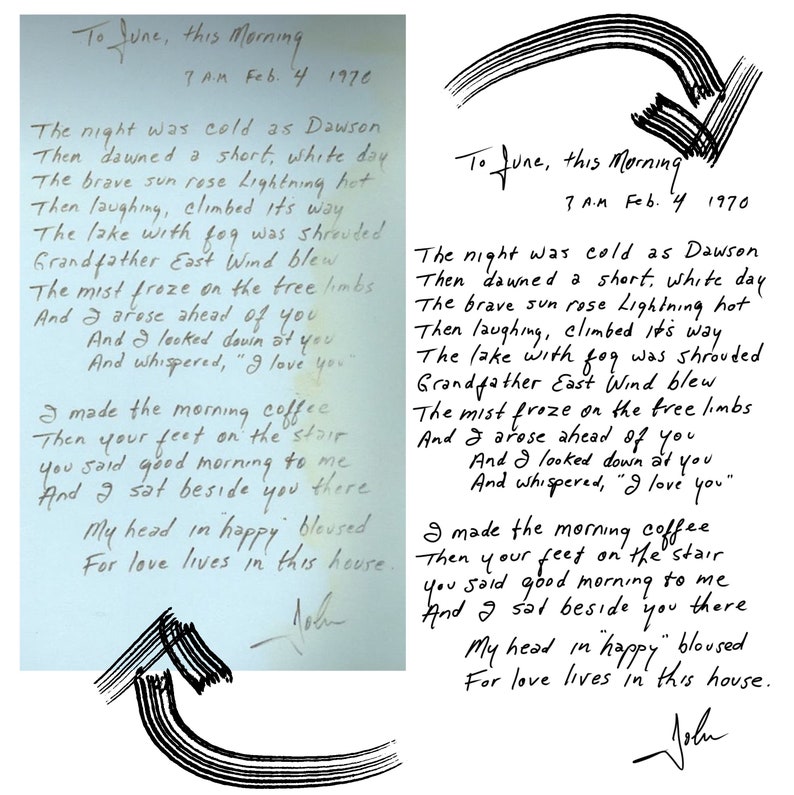 To June, this Morning
3 A.M Feb. 4 1970
The night was cold as Dawson
Then dawned a short, white day
The brave sun rose Lightning hot
Then laughing, climbed it's way
The lake with fog was shrouded
Grandfather East Wind blew
The mist froze on the tree limbs
And I arose ahead of you
And I looked down at you
And whispered, "I love you"
I made the morning coffee
Then your feet on the stair
you said good morning to me
And I sat beside you there
My head in "happy" bloused
For love lives in this house.
John
To June, this Morning
3 A.M Feb. 4 1970
The night was cold as Dawson
Then dawned a short, white day
The brave sun rose Lightning hot
Then laughing, climbed it's way
The lake with fog was shrouded
Grandfather East Wind blew
The mist froze on the tree limbs
And I arose ahead of you
And I looked down at you
And whispered, "I love you"
I made the morning coffee
Then your feet on the stair
you said good morning to me
And I sat beside you there
My head in "happy" bloused
For love lives in this house.
John